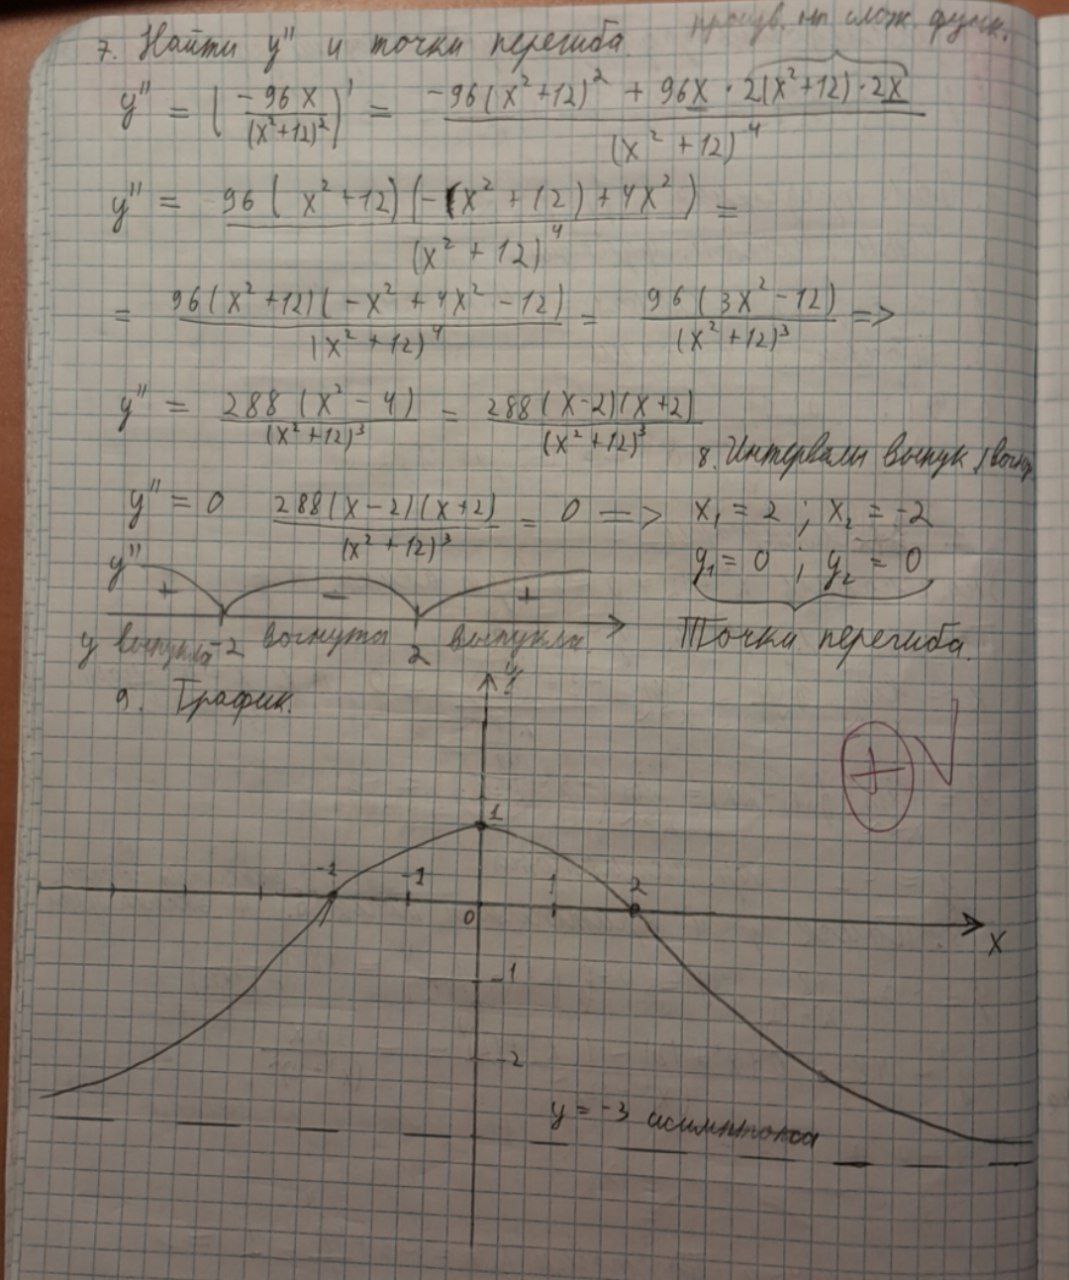 произв. от слож. функ.
7. Найти y'' и точки перегиба
y'' = (-96x/(x²+12)²)' = (-96(x²+12)² + 96x · 2(x²+12) · 2x)/(x²+12)⁴
y'' = 96(x²+12)(-(x²+12)+4x²)/(x²+12)⁴ =
= 96(x²+12)(-x²+4x²-12)/(x²+12)⁴ = 96(3x²-12)/(x²+12)³ =>
y'' = 288(x²-4)/(x²+12)³ = 288(x-2)(x+2)/(x²+12)³
8. Интервалы выпук./вогн.
y'' = 0 288(x-2)(x+2)/(x²+12)³ = 0 => x₁ = 2 ; x₂ = -2
y₁ = 0 ; y₂ = 0
y'' + - +
y выпукла -2 вогнута 2 выпукла
Точки перегиба.
9. График.
y
+ √
1
-2 -1 0 1 2
x
-1
-2
y = -3 асимптота